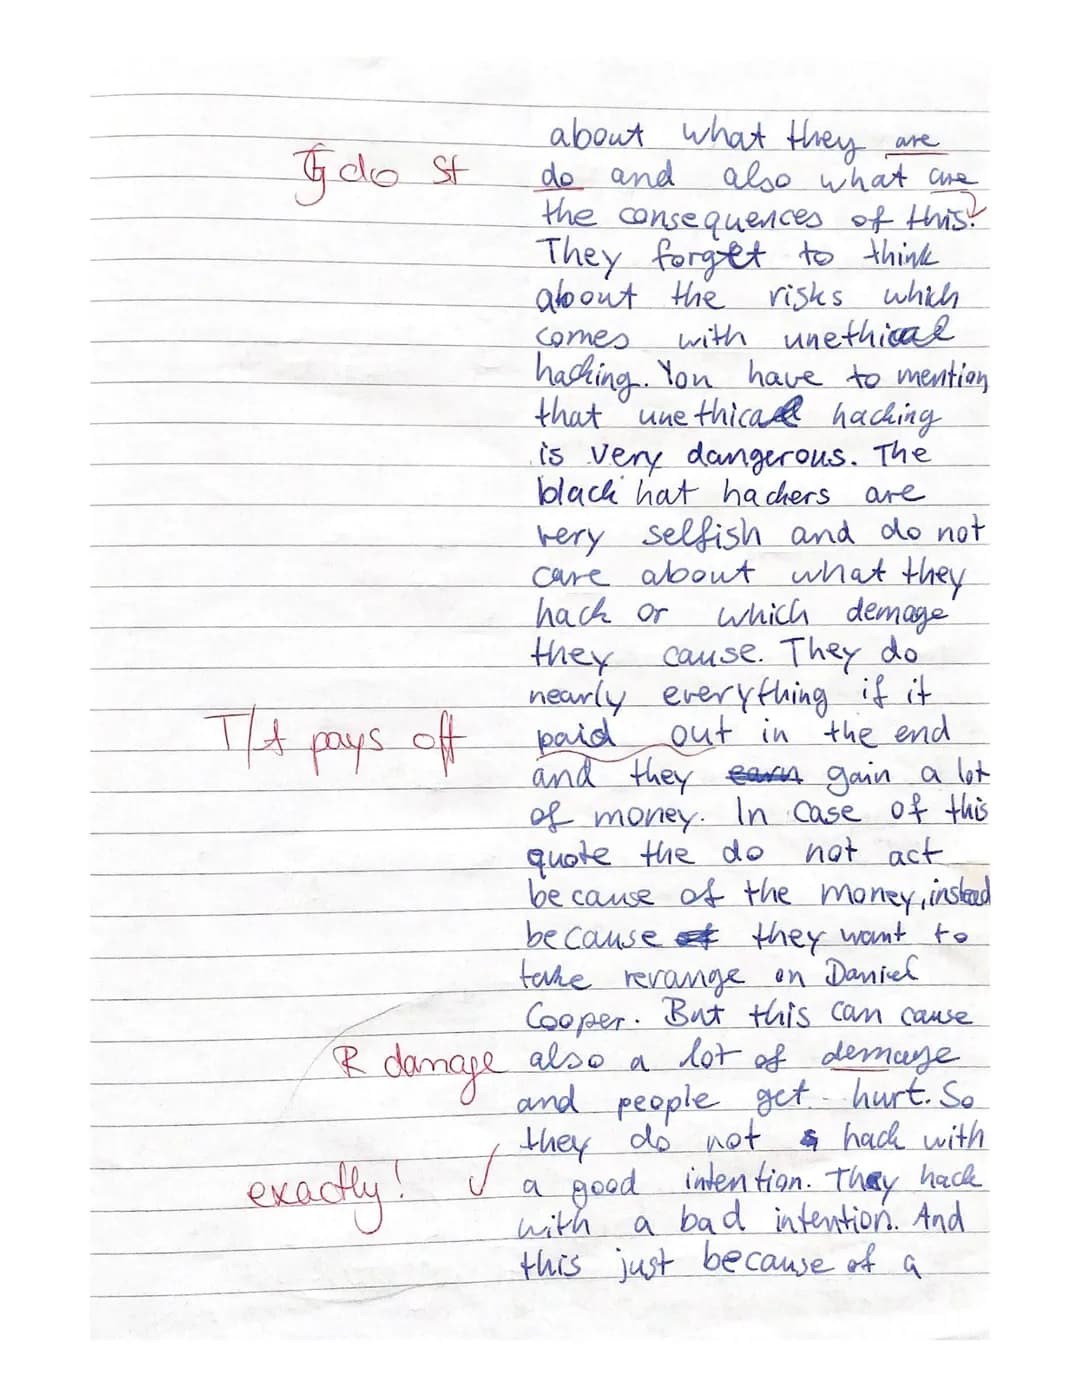 about what they are
G do St do and also what are
the consequences of this.
They forget to think
about the risks which
comes with unethical
hacking. You have to mention
that unethical hacking
is very dangerous. The
black hat hackers are
very selfish and do not
care about what they
hack or which demage
they cause. They do
nearly everything if it
T/A pays off paid out in the end
and they earn gain a lot
of money. In case of this
quote the do not act
because of the money, instead
because of they want to
take revange on Daniel
Cooper. But this can cause
R damage also a lot of demage
and people get hurt. So
they do not hack with
exactly! ✓ a good intention. They hack
with a bad intention. And
this just because of a